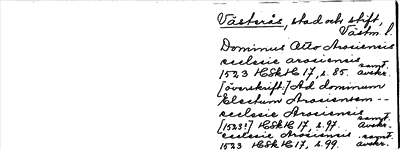 Västerås, stad och stift,
Västm. l.
Dominus Otto Arosiensis
ecclesie arosiensis
1523 HSkH 17, s. 85. samt. avskr.
[överskrift:] Ad dominum
Electum Arosiensem --
ecclesie Arosiensis
[1523?] HSkH 17, s. 97. samt. avskr.
ecclesie Arosiensis
1523 HSkH 17, s. 99. samt. avskr.